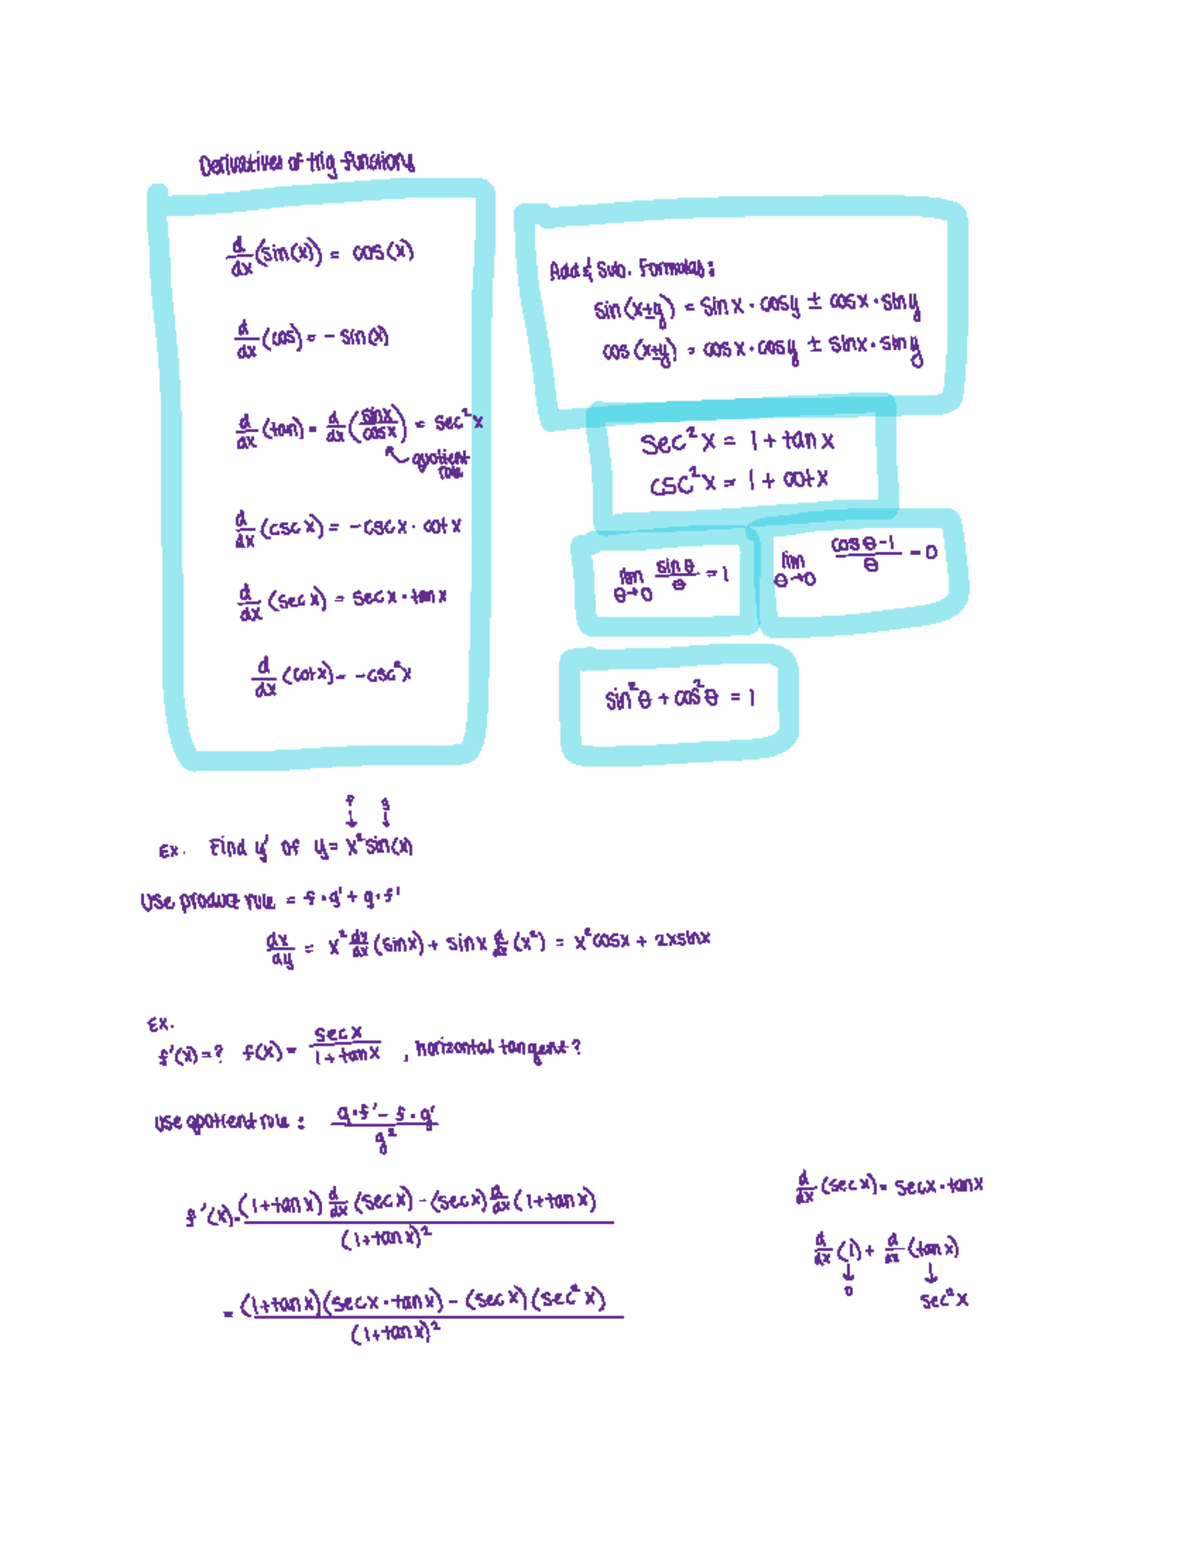 Derivatives of trig functions
d/dx (sin(x)) = cos(x)
d/dx (cos) = - sin(x)
d/dx (tan) = d/dx (sinx/cosx) = sec²x
quotient rule
d/dx (csc x) = -csc x · cot x
d/dx (sec x) = sec x · tan x
d/dx (cot x) = -csc²x
Add & Sub. Formulas:
sin (x±y) = sin x · cos y ± cos x · sin y
cos (x±y) = cos x · cos y ± sin x · sin y
sec²x = 1 + tan x
csc²x = 1 + cot x
lim θ→0 sin θ/θ = 1
lim θ→0 cos θ-1/θ = 0
sin²θ + cos²θ = 1
f g
↓ ↓
Ex. Find y' of y = x²sin(x)
Use product rule = f · g' + g · f'
dx/dy = x² dx/dx (sin x) + sin x d/dx (x²) = x²cosx + 2xsinx
Ex.
f'(x) = ? f(x) = sec x/1 + tan x , horizontal tangent?
Use quotient rule: g · f' - f · g'/g²
f'(x) = (1+tan x) d/dx (sec x) - (sec x) d/dx (1+tan x)/(1+tan x)²
= (1+tan x)(sec x · tan x) - (sec x)(sec² x)/(1+tan x)²
d/dx (sec x) = sec x · tan x
d/dx (1) + d/dx (tan x)
↓ ↓
0 sec²x